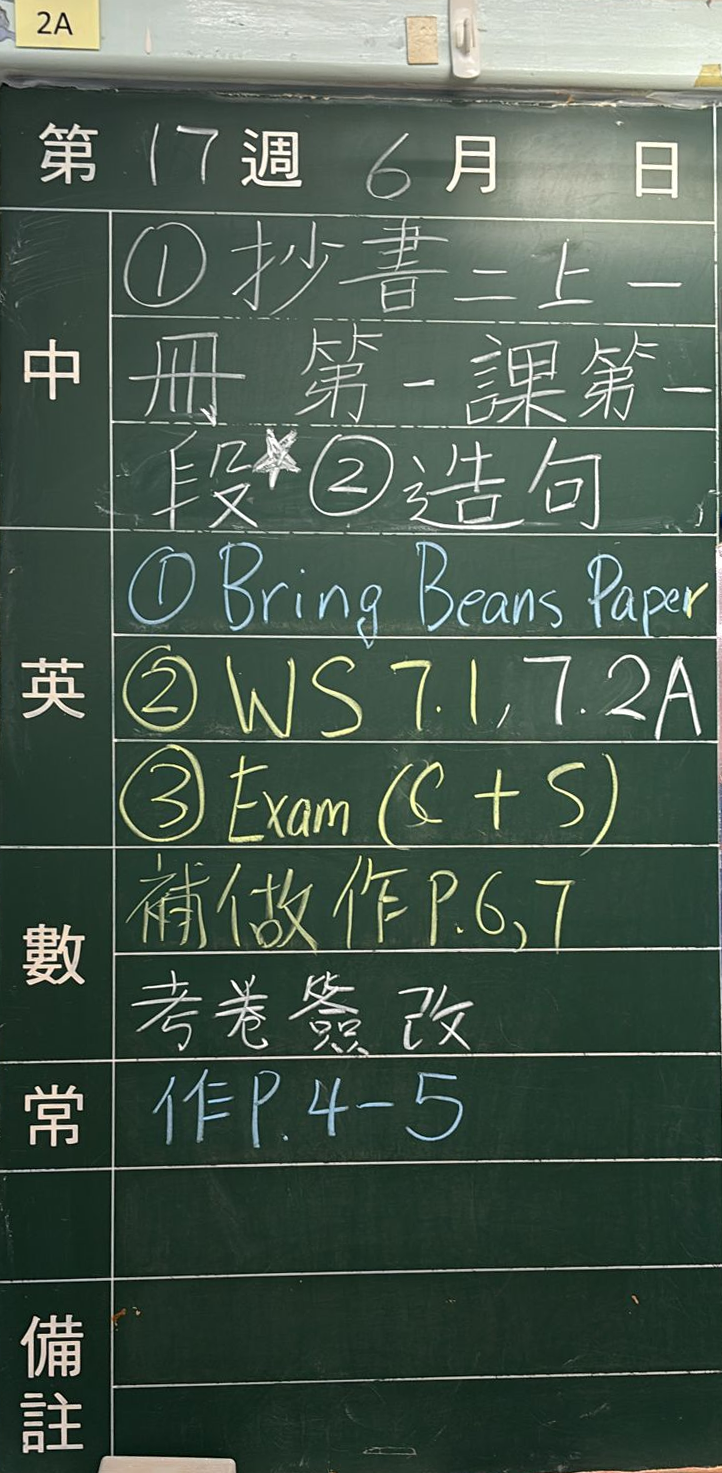 2A
第 17 週 6 月 日
中
①抄書二上一
冊 第一課第一
段☆②造句
英
① Bring Beans Paper
② WS 7.1, 7.2A
③ Exam (C + S)
數
補做作P.6,7
考卷簽改
常
作P.4-5
備註